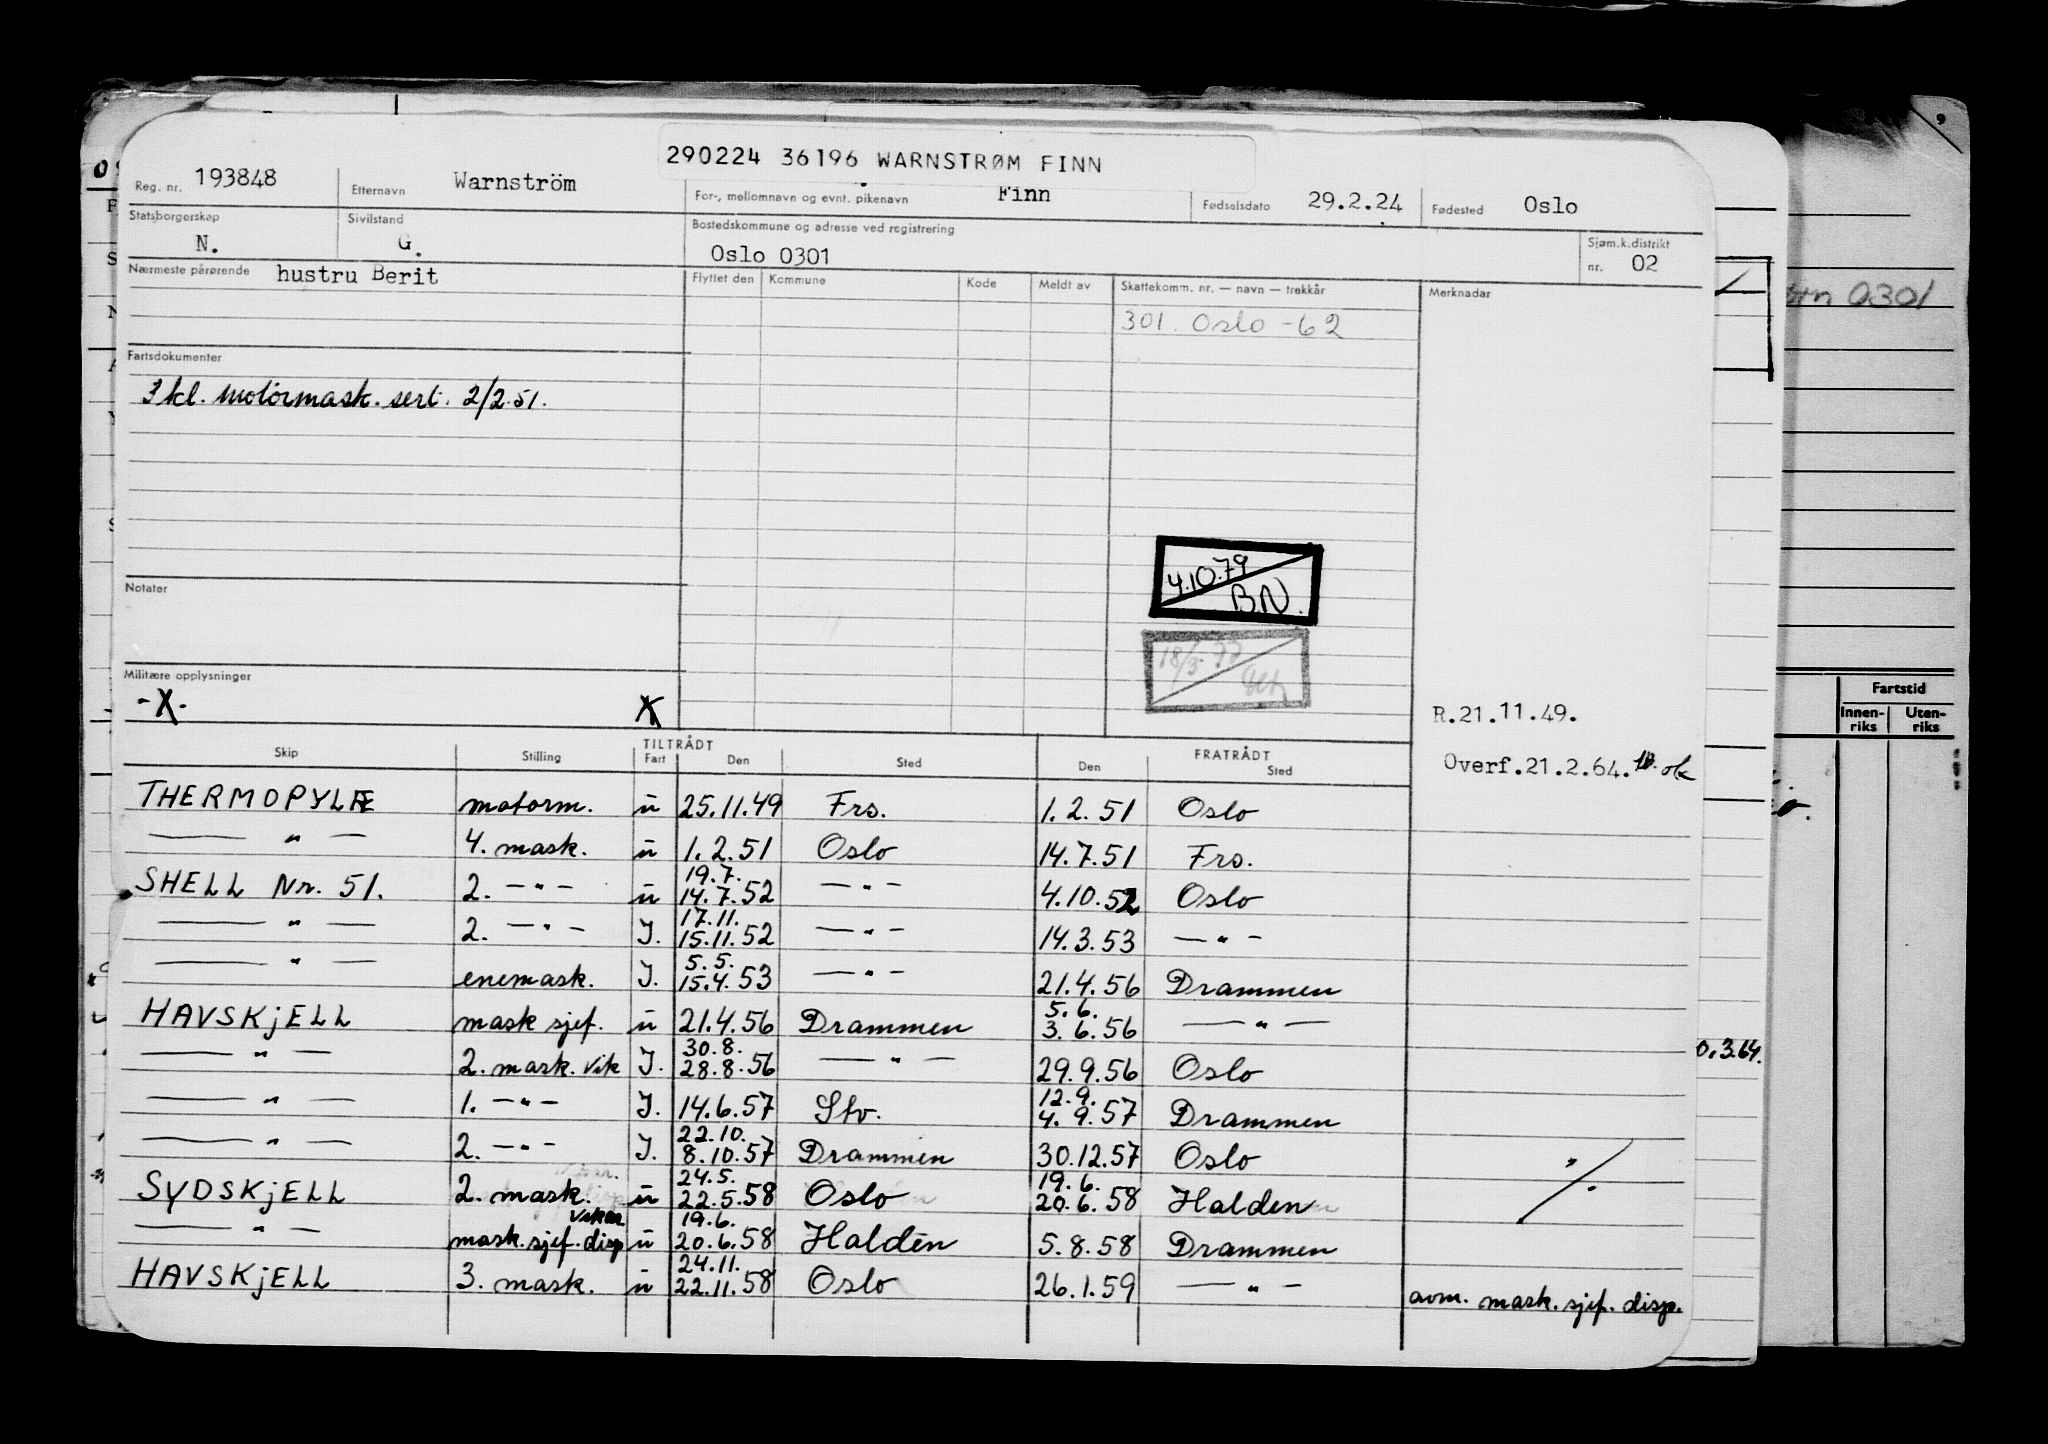 290224 36196 WARNSTRØM FINN
Reg. nr. 193848 Etternavn Warnström For-, mellomnavn og evnt. pikenavn Finn Fødselsdato 29.2.24 Fødested Oslo
Statsborgerskap N. Sivilstand G. Bostedskommune og adresse ved registrering Oslo 0301 Sjøm.k.distrikt nr. 02
Nærmeste pårørende hustru Berit
Flyttet den Kommune Kode Meldt av Skattekomm. nr. — navn — trekkår Merknader
301. Oslo -62
Fartsdokumenter
3 kl. motormask. sert. 2/2.51.
4.10.79
BN.
Notater
Militære opplysninger
-X- X
R.21.11.49.
Overf.21.2.64. ok
TILTRÅDT FRATRÅDT
Skip Stilling Fart Den Sted Den Sted
THERMOPYLÆ motorm. u 25.11.49 Frs. 1.2.51 Oslo
— " — 4. mask. u 1.2.51 Oslo 14.7.51 Frs.
19.7.
SHELL Nr. 51. 2. — " — u 14.7.52 — " — 4.10.52 Oslo
17.11.
— " — 2. — " — I. 15.11.52 — " — 14.3.53 — " —
5.5.
— " — enemask. I. 15.4.53 — " — 21.4.56 Drammen
5.6.
HAVSKjELL mask sjef. u 21.4.56 Drammen 3.6.56 — " —
30.8.
— " — 2. mask. vik I. 28.8.56 — " — 29.9.56 Oslo
12.9.
— " — 1. — " — I. 14.6.57 Stv. 4.9.57 Drammen
22.10.
— " — 2. — " — I. 8.10.57 Drammen 30.12.57 Oslo
24.5. 19.6.
SYDSKjELL 2. mask. u 22.5.58 Oslo 20.6.58 Halden
vikar 19.6.
— " — mask. sjef. disp u 20.6.58 Halden 5.8.58 Drammen
24.11.
HAVSKjELL 3. mask. u 22.11.58 Oslo 26.1.59 — " — avm. mask. sjef. disp.
0301
Fartstid
Innen-riks Uten-riks
0.3.64.